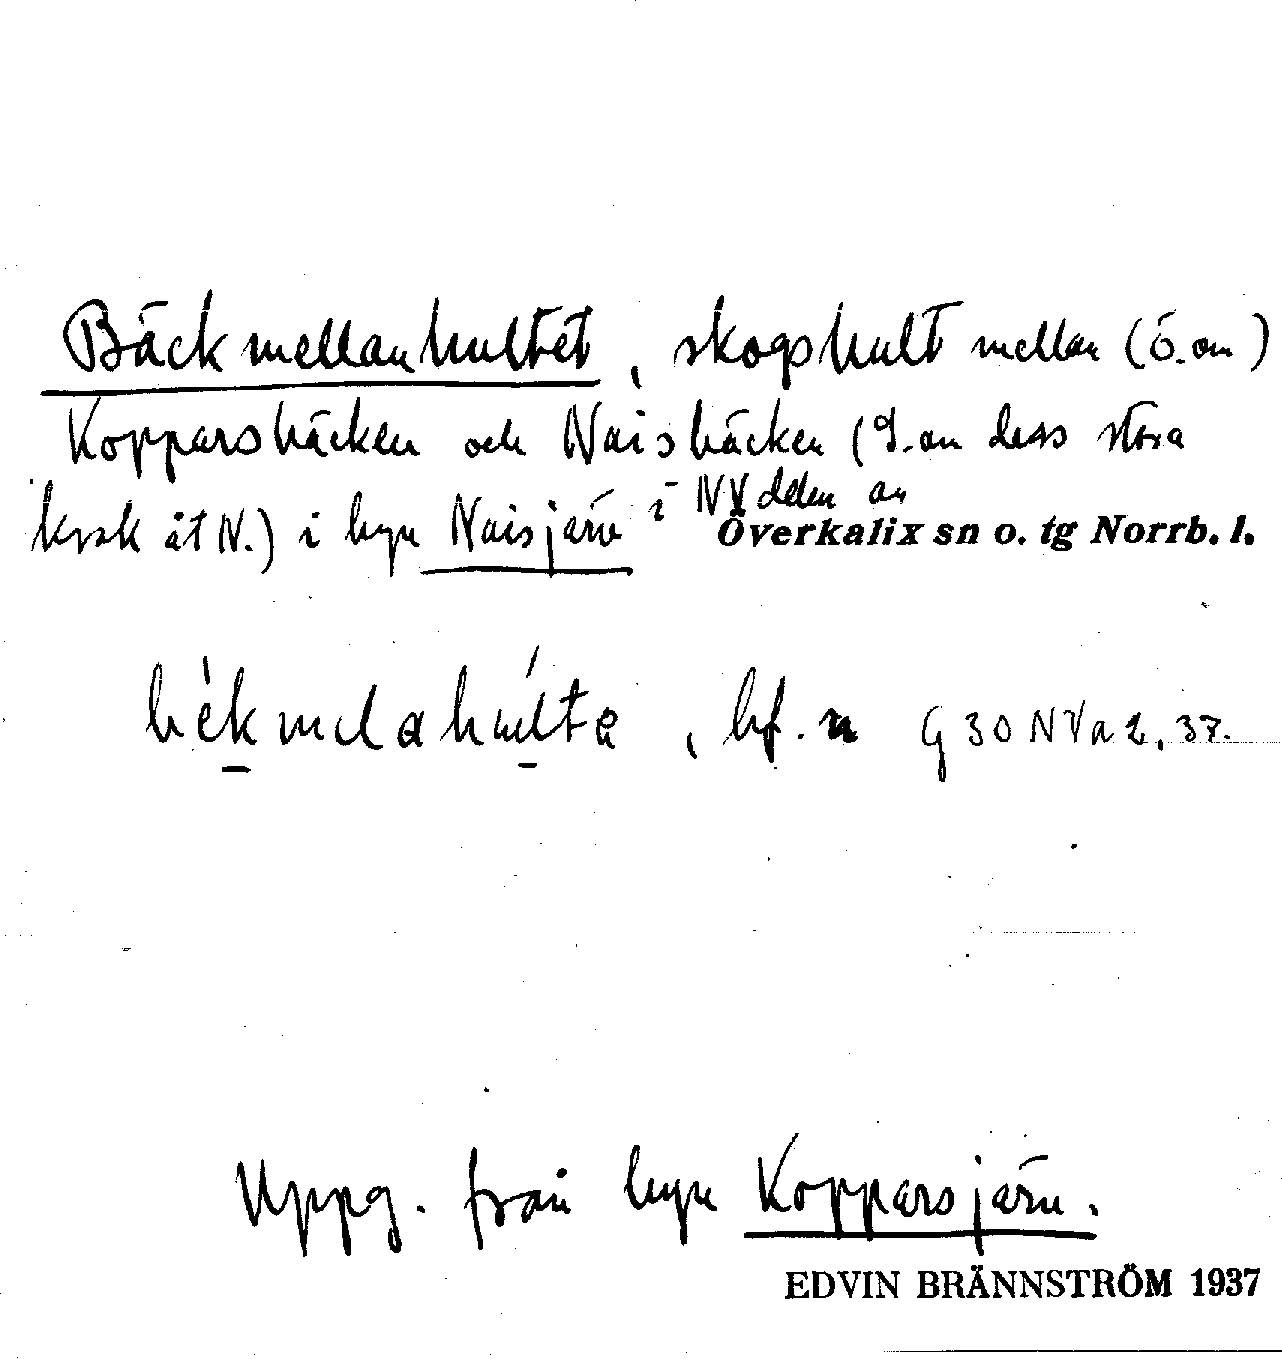 Bäckmellanhultet, skogshult mellan (ö. om)
Kopparsbäcken och Naisbäcken (S. om dess stora
krok åt N.) i byn Naisjärv i NV delen av
Överkalix sn o. tg Norrb. l.
bèkmelahúlta, bf. n G 30 NVa2, 37.
Uppg. från byn Kopparsjärv.
EDVIN BRÄNNSTRÖM 1937